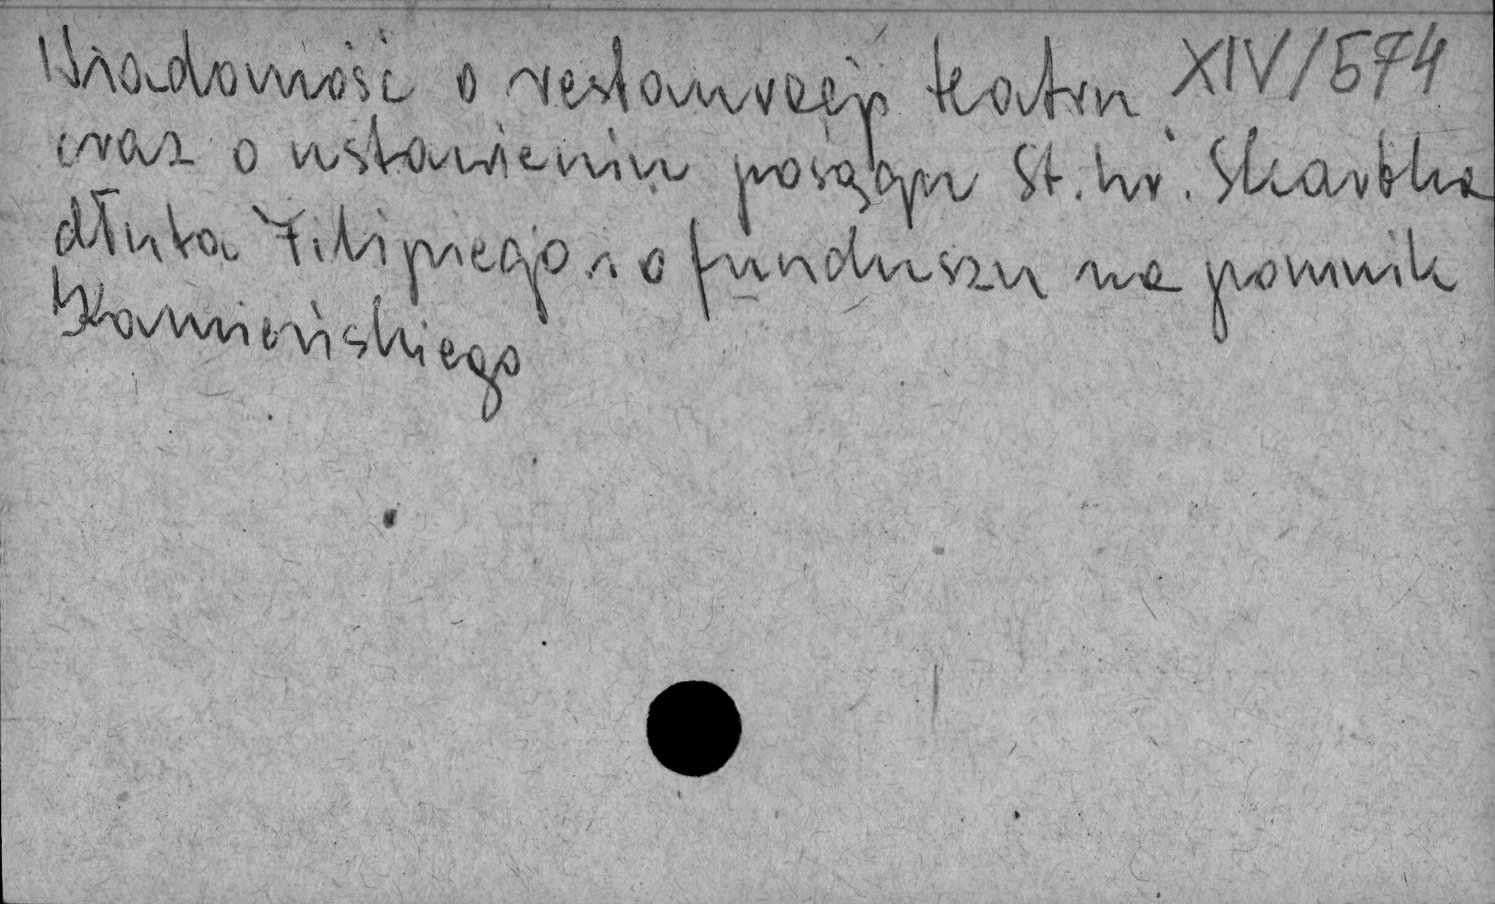 Wiadomość o restauracji teatru XIV/574
oraz o ustawieniu posągu St. hr. Skarbka
dłuta Filipiego i o funduszu na pomnik
Kamieńskiego